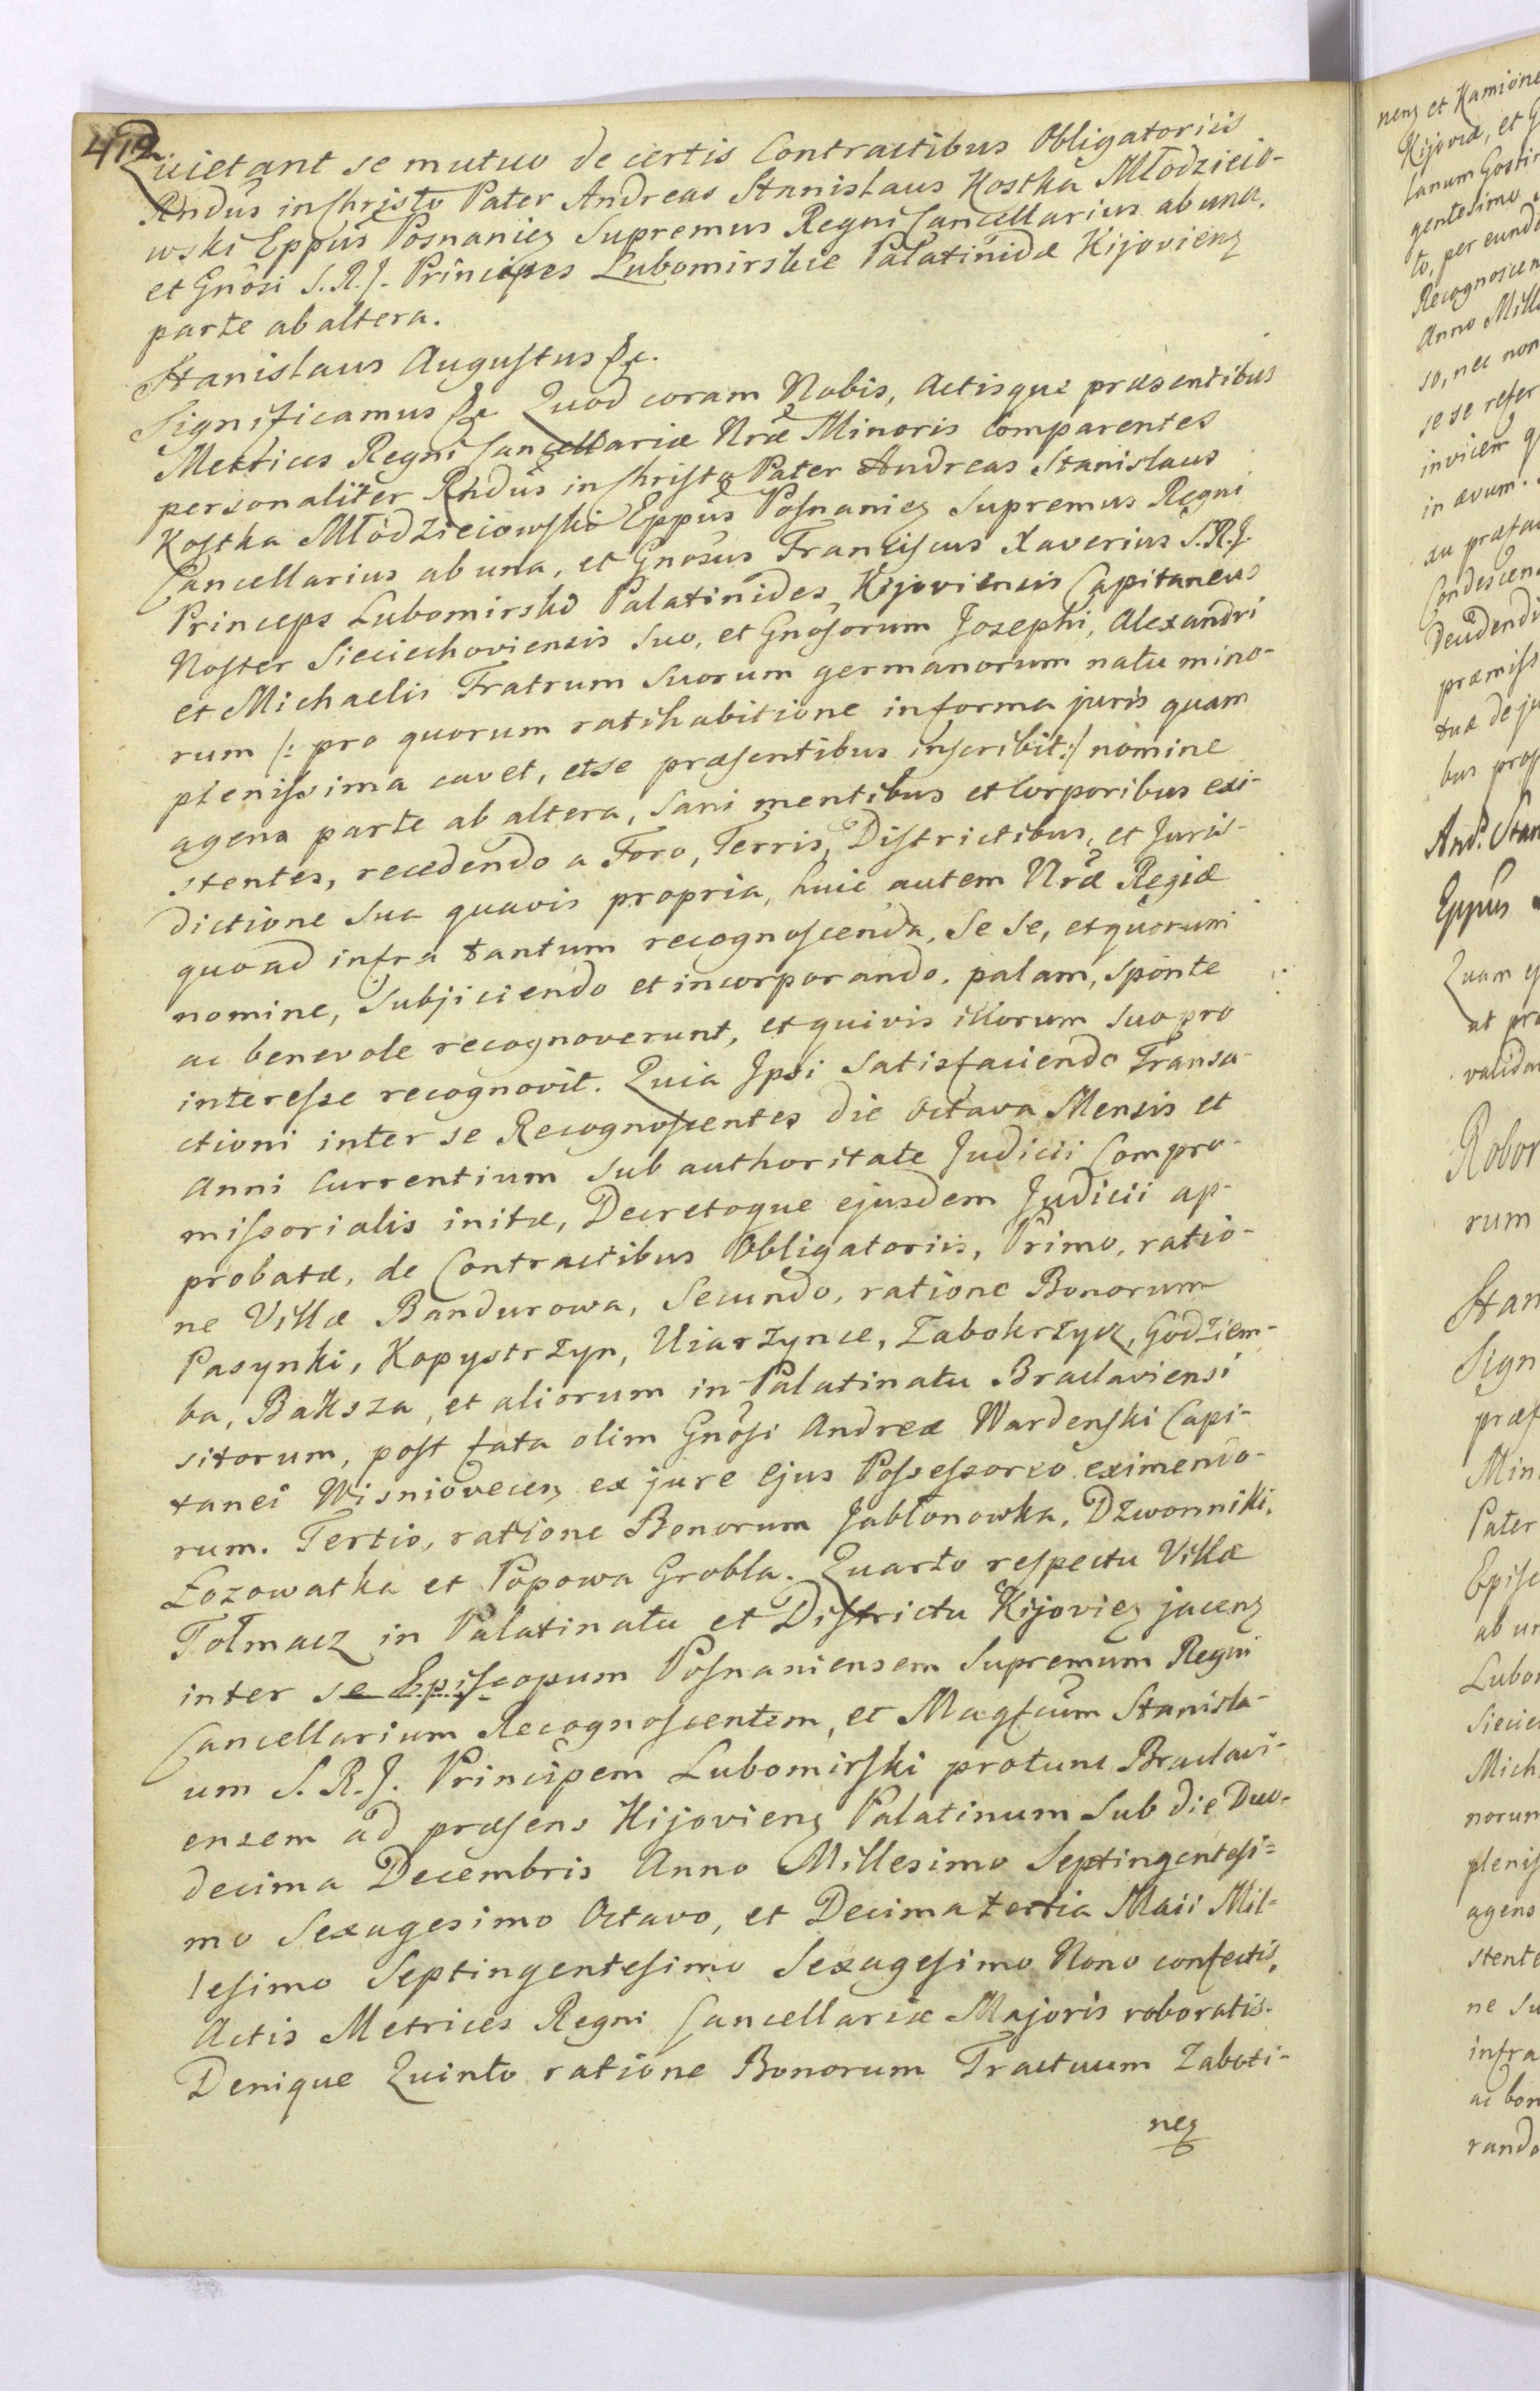 412
Quietant se mutuo de certis Contractibus Obligatoriis
Rndus in Christo Pater Andreas Stanislaus Kostka Młodzieio-
wski Eppus Posnanień Supremus Regni Cancellarius ab una,
et Gnosi S.R.J. Principes Lubomirskie Palatinidæ Kijovień
parte ab altera.
Stanislaus Augustus &c.
Significamus &c Quod coram Nobis, Actisque præsentibus
Metrices Regni Cancellariæ Nræ Minoris Comparentes
personaliter Rndus in Christo Pater Andreas Stanislaus
Kostka Młodzieiowski Eppus Posnanień Supremus Regni
Cancellarius ab una, et Gnosus Franciscus Xaverius S.R.J.
Princeps Lubomirski Palatinides Kijoviensis Capitaneus
Noster Sieciechoviensis suo, et Gnosorum Josephi, Alexandri
et Michaelis Fratrum suorum germanorum natu mino-
rum /: pro quorum ratihabitione in forma juris quam
plenissima cavet, et se præsentibus inscribit :/ nomine
agens parte ab altera, sani mentibus et Corporibus exi-
stentes, recedendo a Foro, Terris, Districtibus, et Juris-
dictione sua quavis propria, huic autem Nræ Regiæ
quoad infra tantum recognoscenda, se se, et quorum
nomine, subjiciendo et incorporando, palam, sponte
ac benevole recognoverunt, et quivis illorum suo pro
interesse recognovit. Quia Ipsi satisfaciendo Transa-
ctioni inter se Recognoscentes die octava Mensis et
Anni Currentium sub authoritate Judicii Compro-
missorialis initæ, Decretoque ejusdem Judicii ap-
probatæ, de Contractibus Obligatoriis, Primo, ratio-
ne Villæ Bandurowa, Secundo, ratione Bonorum
Pasynki, Kopystrzyn, Uiarzynce, Zabokrzycz, Godziem-
ba, Baksza, et aliorum in Palatinatu Braclaviensi
sitorum, post fata olim Gnosi Andreæ Wardenski Capi-
tanei Wisnioveceń ex jure ejus Possessorio eximendo-
rum. Tertio, ratione Bonorum Jabłonowka, Dzwonniki,
Łozowatka et Popowa Grobla. Quarto respectu Villæ
Tołmacz in Palatinatu et Districtu Kijovień jaceń
inter se Episcopum Posnaniensem Supremum Regni
Cancellarium Recognoscentem, et Magfcum Stanisla-
um S.R.J. Principem Lubomirski protunc Braclavi-
ensem ad præsens Kijovień Palatinum sub die Duo-
decima Decembris Anno Millesimo Septingentesi=
mo Sexagesimo Octavo, et Decima tertia Maii Mil=
lesimo Septingentesimo Sexagesimo Nono confectis,
Actis Metrices Regni Cancellariæ Majoris roboratis.
Denique Quinto ratione Bonorum Tractuum Zaboti-
neń
neń et Kamione
Kijoviæ, et G
lanum Gostin
gentesimo
to, per eund
Recognoscen
Anno Mill
so, nec non
se se refer
invicem q
in ævum.
xu præfa
Condescen
Decidendi
præmiss
tuæ de ju
bus prop
And. Stan
Eppus
Quam
at pro
valida
Robor
rum
Stan
Sign
præs
Min
Pater
Episc
ab un
Lubo
Siecie
Mich
norum
plenis
agens
stente
ne su
infra
ac bon
rando